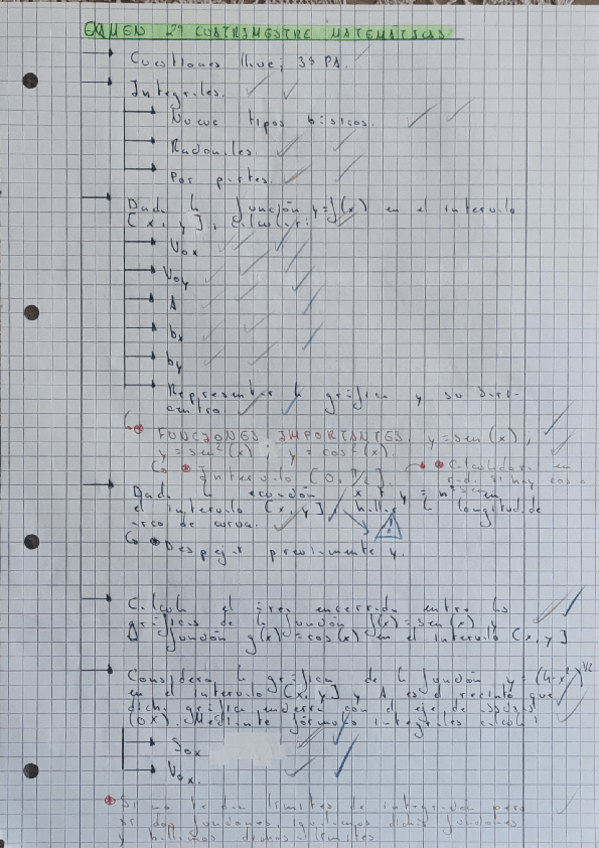 EXAMEN 2º CUATRIMESTRE MATEMÁTICAS
Cuestiones llave, 3º PA.
Integrales.
Nueve tipos básicos.
Racionales.
Por partes.
Dada la función y=f(x) en el intervalo
[x, y], calcular:
Vox
Voy
A
bx
by
Representar la gráfica y su
centro.
FUNCIONES IMPORTANTES: y=sen(x);
y=sen²(x); y=cos²(x).
Intervalo [0, π/2].
Calculadora en
rad. si hay cos o
sen
Dada la ecuación x + y =
el intervalo [x, y], hallar longitud de
arco de curva.
Despejar previamente y.
Calcula el área encerrada entre las
gráficas de la función f(x)=sen(x) y
función g(x)=cos(x) en el intervalo [x, y]
Considera la gráfica de la función y=(4-x²)^1/2
en el intervalo [x, y] y A es el recinto que
dicha gráfica encierra con el eje de
(OX). Mediante fórmulas integrales calcula:
Sox
Vox.
Si no te dan límites de integración pero
sí dos funciones, igualamos dichas funciones
y hallamos dichos límites